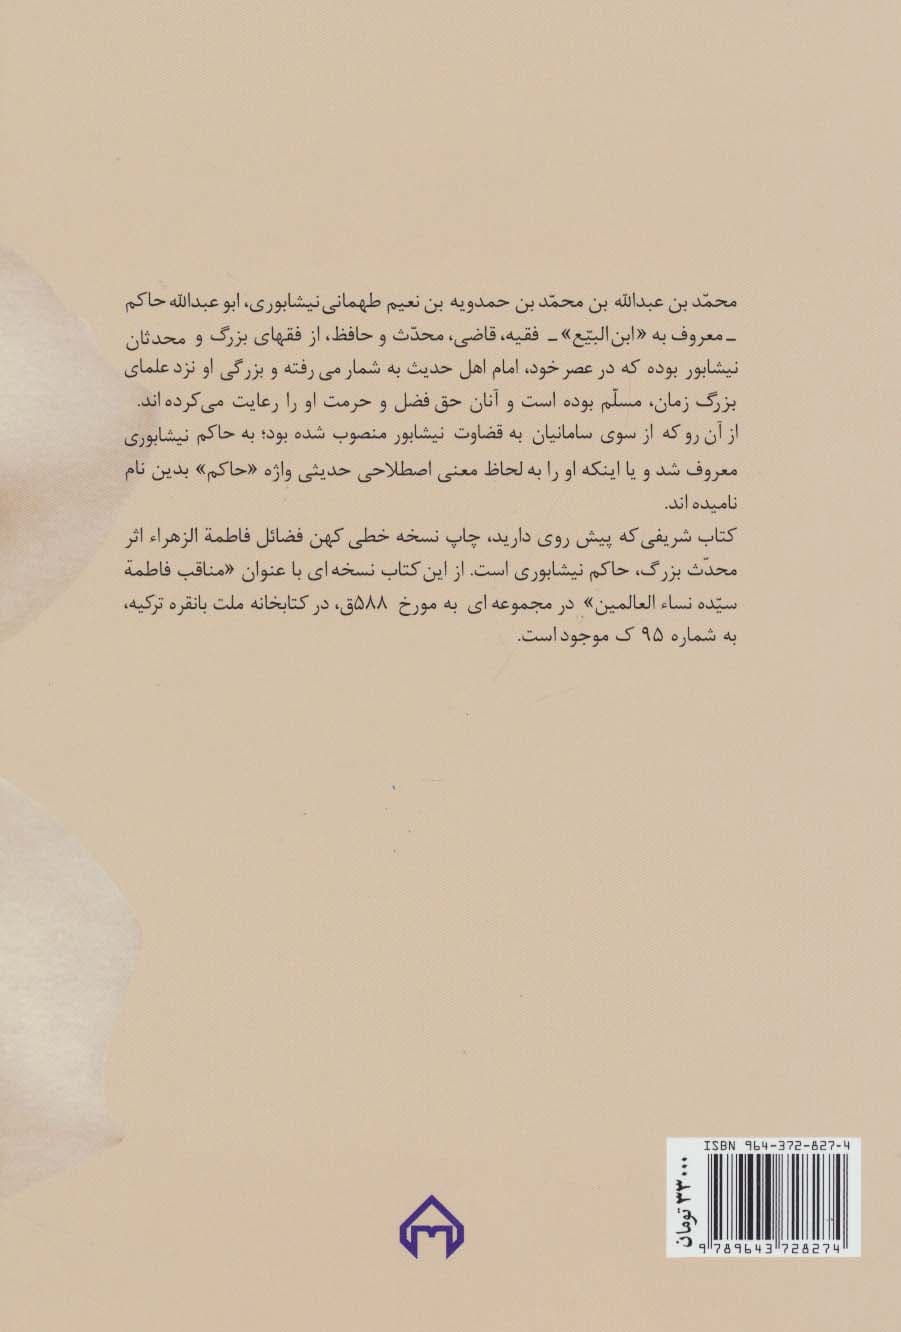 محمّد بن عبدالله بن محمّد بن حمدویه بن نعیم طهمانی نیشابوری، ابو عبدالله حاکم
ـ معروف به «ابن البیّع» ـ فقیه، قاضی، محدّث و حافظ، از فقهای بزرگ و محدثان
نیشابور بوده که در عصر خود، امام اهل حدیث به شمار می رفته و بزرگی او نزد علمای
بزرگ زمان، مسلّم بوده است و آنان حق فضل و حرمت او را رعایت می کرده اند.
از آن رو که از سوی سامانیان به قضاوت نیشابور منصوب شده بود؛ به حاکم نیشابوری
معروف شد و یا اینکه او را به لحاظ معنی اصطلاحی حدیثی واژه «حاکم» بدین نام
نامیده اند.
کتاب شریفی که پیش روی دارید، چاپ نسخه خطی کهن فضائل فاطمة الزهراء اثر
محدّث بزرگ، حاکم نیشابوری است. از این کتاب نسخه ای با عنوان «مناقب فاطمة
سیّده نساء العالمین» در مجموعه ای به مورخ ۵۸۸ق، در کتابخانه ملت بانقره ترکیه،
به شماره ۹۵ ک موجود است.
ISBN 964-372-827-4
۳۳۰۰۰ تومان
9 789643 728274